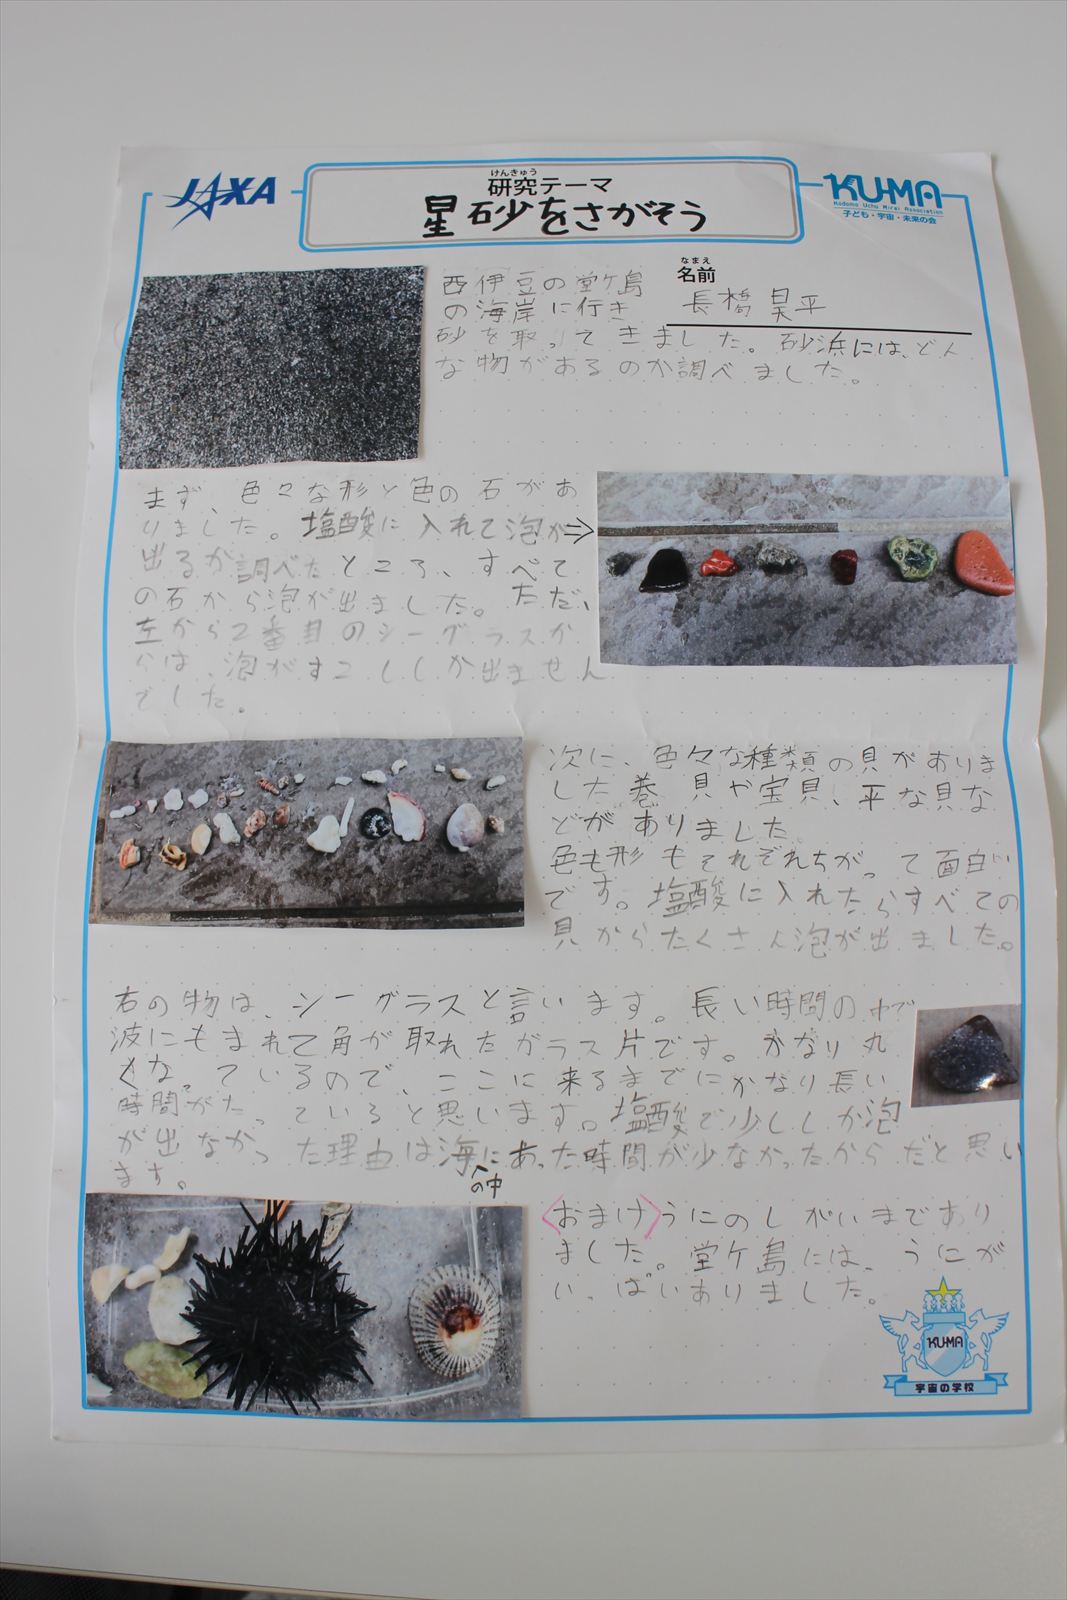 JAXA
けんきゅう
研究テーマ
星砂をさがそう
KU-MA
Kodomo Uchu Mirai Association
子ども・宇宙・未来の会
なまえ
名前
長橋昊平
西伊豆の堂ケ島
の海岸に行き
砂を取ってきました。砂浜には、どん
な物があるのか調べました。
まず、色々な形と色の石があ
りました。塩酸に入れて泡が⇒
出るか調べたところ、すべて
の石から泡が出ました。ただ、
左から2番目のシーグラスか
らは、泡がすこししか出ません
でした。
次に、色々な種類の貝がありま
した巻貝や宝貝、平な貝な
どがありました
色も形もそれぞれちがって面白い
です。塩酸に入れたらすべての
貝からたくさん泡が出ました。
右の物は、シーグラスと言います。長い時間の中で
波にもまれて角が取れたガラス片です。かなり丸
くなっているので、ここに来るまでにかなり長い
時間がたっていると思います。塩酸で少ししか泡
が出なかった理由は海にあった時間が少なかったからだと思い
の中
ます。
〈おまけ〉うにのしがいまであり
ました。堂ケ島には、うにが
いっぱいありました。
KU-MA
宇宙の学校